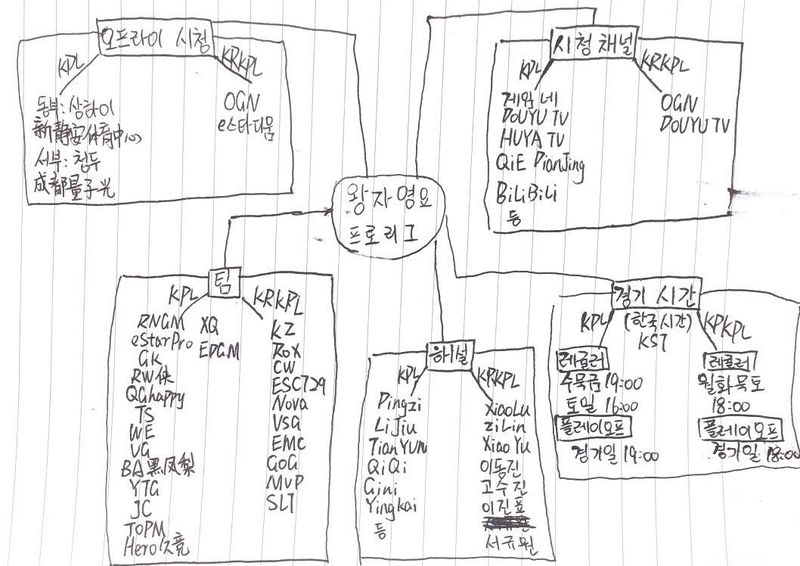 오프라이 시청
KPL
KRKPL
동부: 상하이
新静安体育中心
서부: 청두
成都量子光
OGN
e스타디움
시청 채널
KPL
KRKPL
게임 네
DOUYU TV
HUYA TV
QiE DianJing
BiLiBiLi
등
OGN
DOUYU TV
왕자영요
프로리그
팀
KPL
KRKPL
RNGM
eStarPro
GK
RW侠
QGhappy
TS
WE
VG
BA黑凤梨
YTG
JC
TOPM
Hero久竞
XQ
EDGM
KZ
ROX
CW
ESC729
Nova
VSG
EMC
GOG
MVP
SLT
KPL
KRKPL
Pingzi
LiJiu
TianYUN
QiQi
Gini
Yingkai
등
XiaoLu
ZiLin
XiaoYu
이동진
고수진
이진표
서규원
경기 시간
(한국시간)
KST
KPL
KPKPL
레귤러
수목금 19:00
토일 16:00
플레이오프
경기일 19:00
레귤러
월화목토
18:00
플레이오프
경기일 18:00